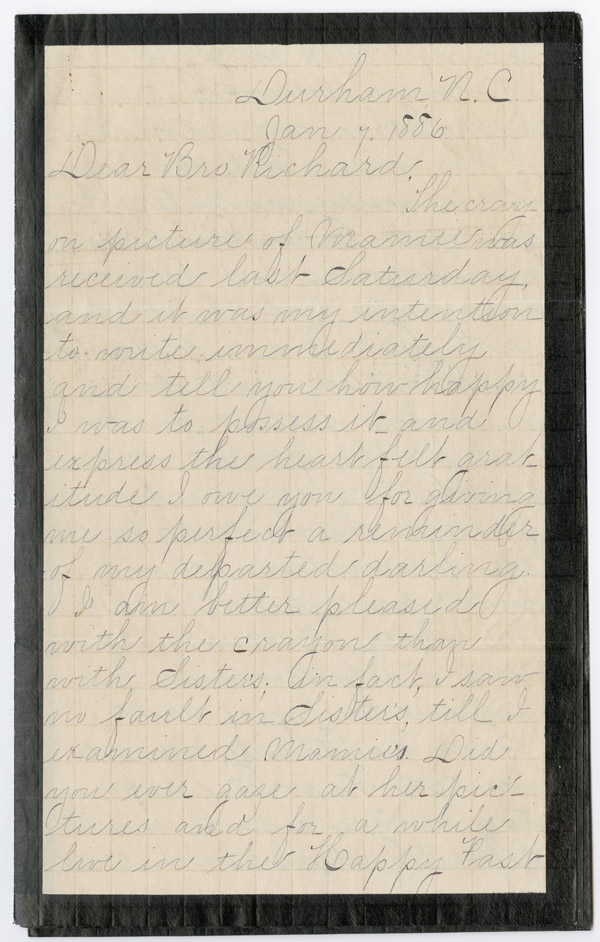 Durham, N.C.
Jan 7. 1886
Dear Bro Richard,
The cray-
on picture of Mamie was
received last Saturday,
and it was my intention
to write immediately
and tell you how happy
I was to possess it and
express the heart felt grat-
itude I owe you for giving
me so perfect a reminder
of my departed darling.
I am better pleased
with the crayon than
with Sister's; in fact, I saw
no fault in Sister's, till I
examined Mamie's. Did
you ever gaze at her pic-
tures and for a while
live in the Happy Past